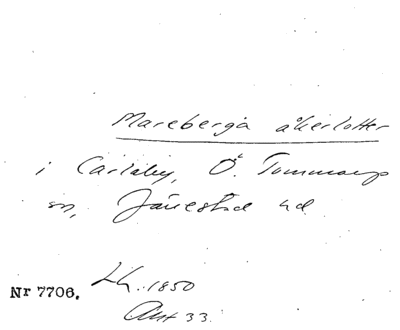 Mareberga åkerlotter
i Carlaby, Ö. Tommarp
sn, Järrestad hd
Nr 7706. Lh. 1850
Akt 33.